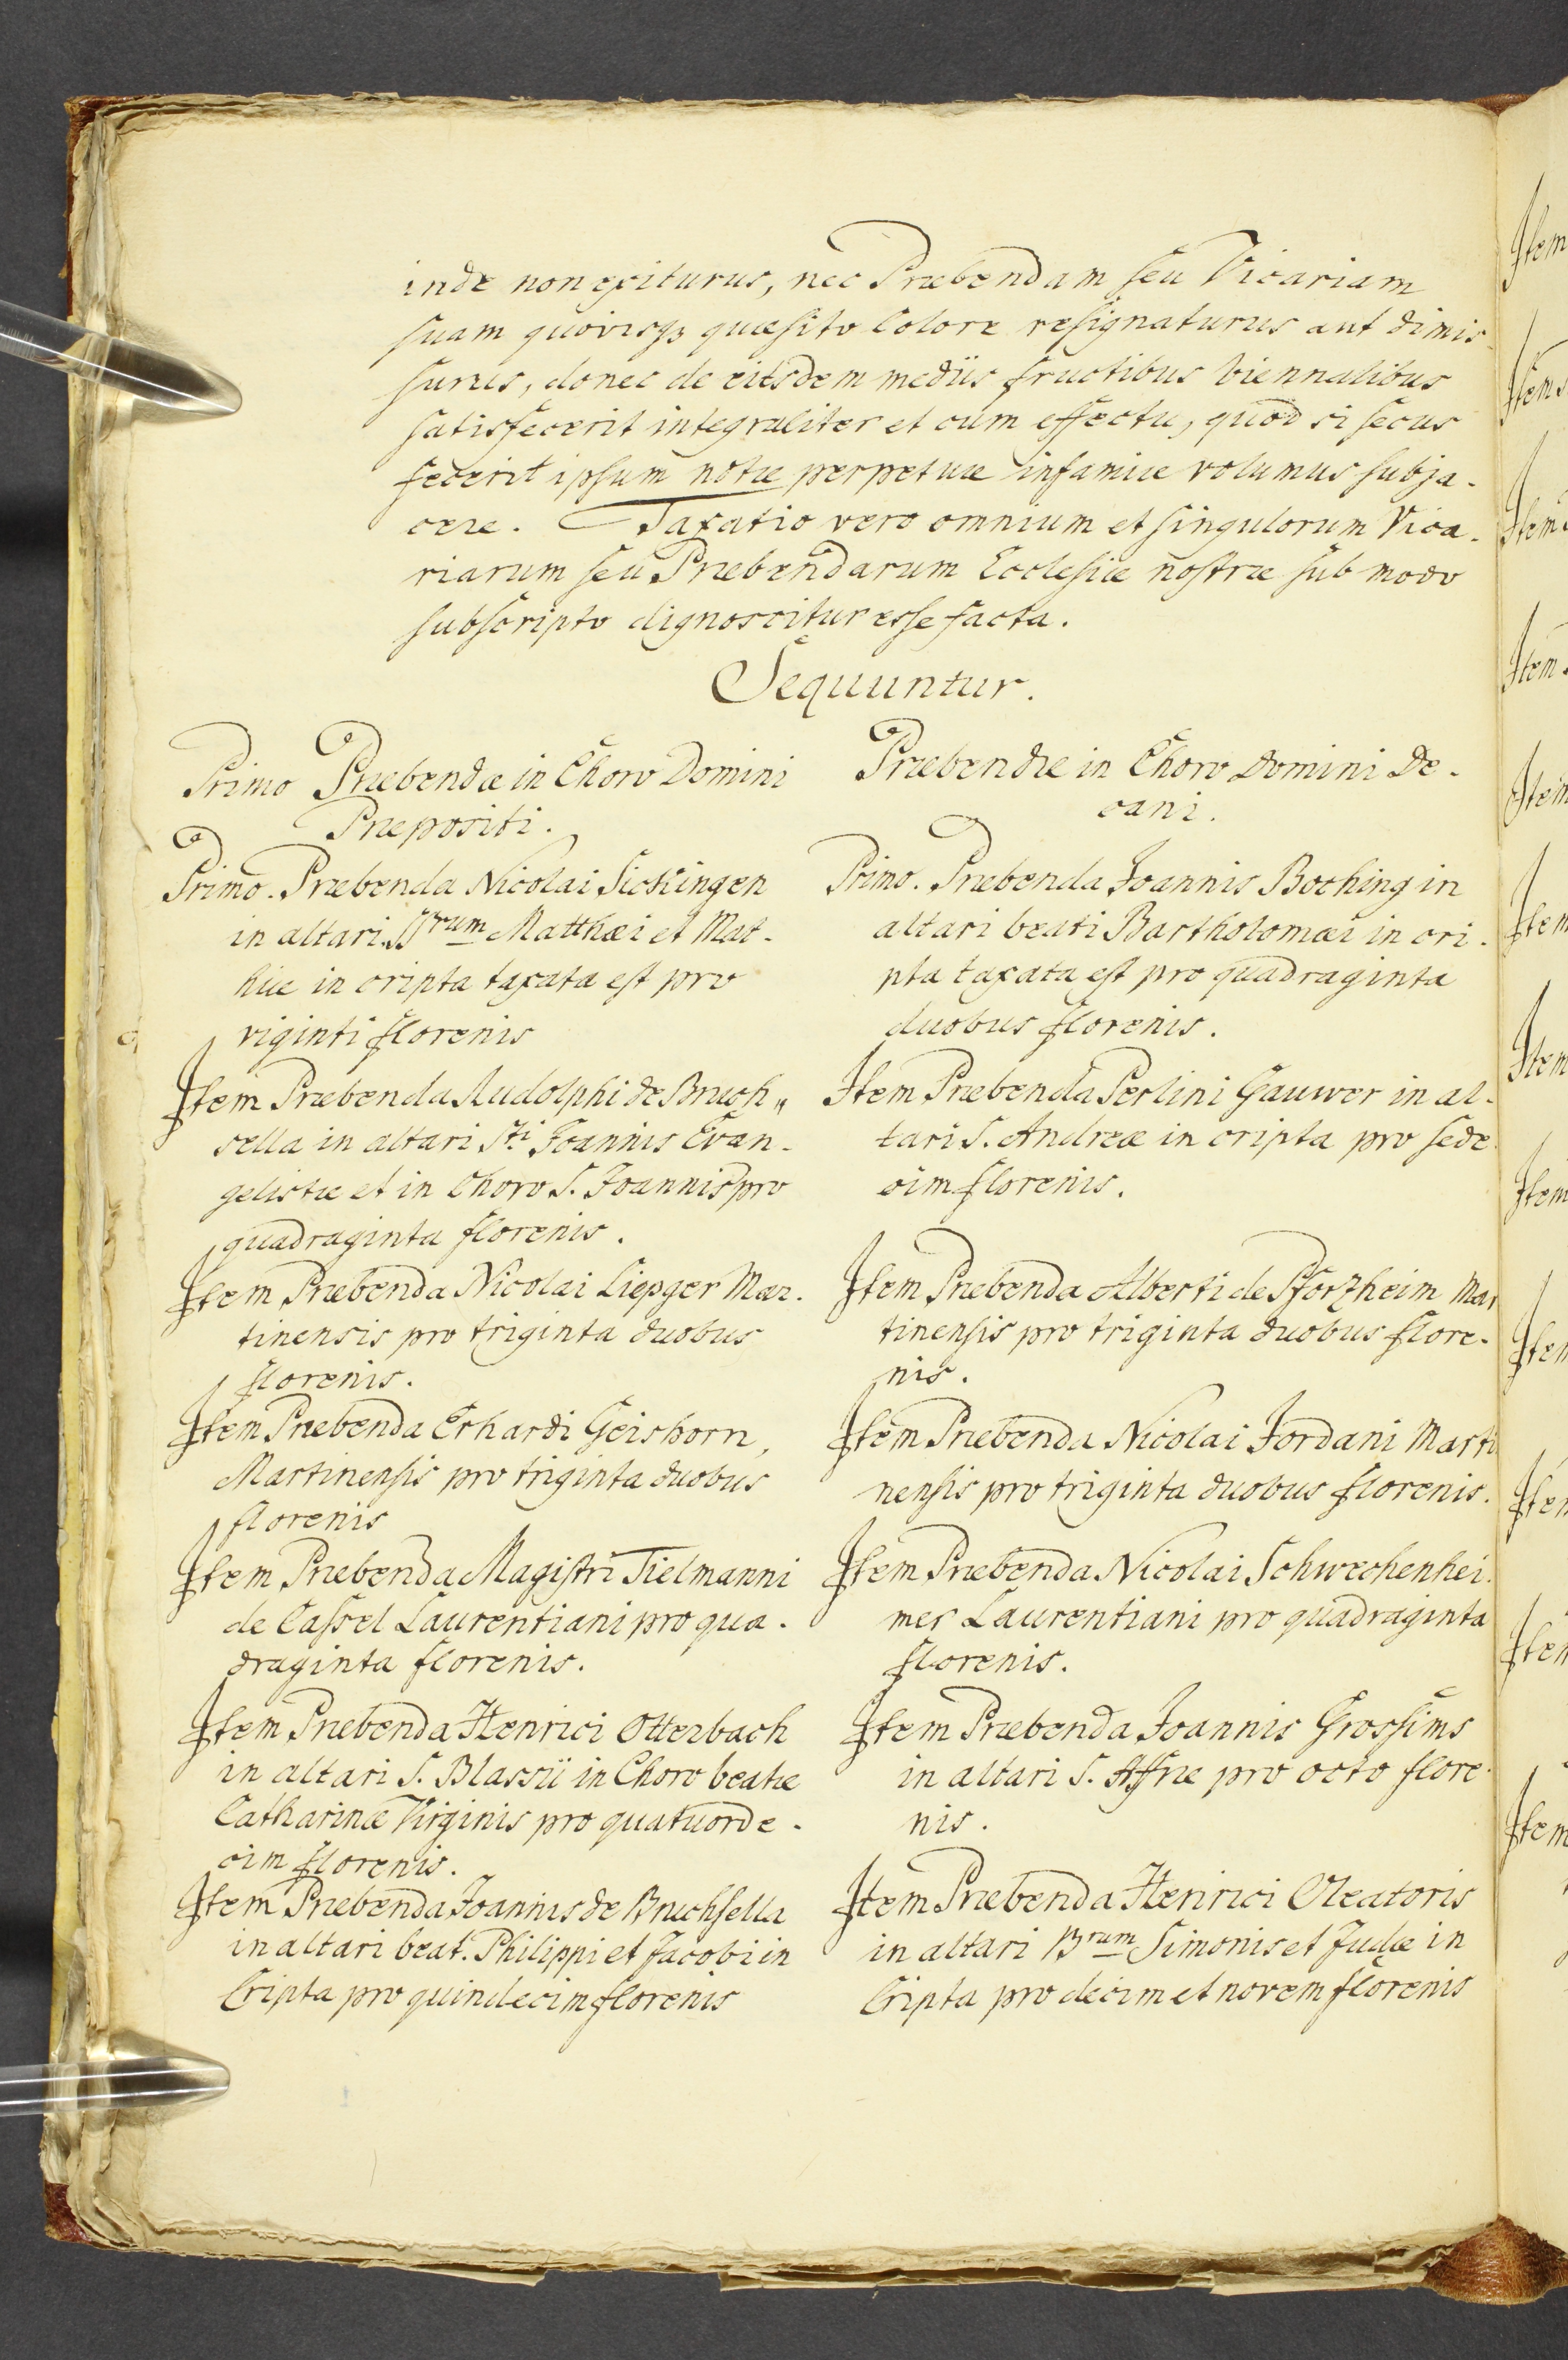 inde non exiturus, nec Præbendam seu Vicariam
suam quovisqȝ quæsito Colore resignaturus aut dimis-
surus, donec de eisdem mediis fructibus biennalibus
satisfecerit integraliter et cum effectu, quod si secus
fecerit ipsum notæ perpetuæ infamiæ volumus subja-
cere. Taxatio vero omnium et singulorum Vica-
riarum seu Præbendarum Ecclesiæ nostræ sub modo
subscripto dignoscitur esse facta.
Sequuntur.
Primo Præbendæ in Choro Domini
Præpositi.
Primo. Præbenda Nicolai Sickingen
in altari Brum Matthæi et Mat-
hiæ in cripta taxata est pro
viginti florenis
Item Præbenda Rudolphi de Bruch„
sella in altari Sti Joannis Evan-
gelistæ et in Choro S. Joannis pro
quadraginta florenis.
Item Præbenda Nicolai Liepger Mar-
tinensis pro triginta duobus
florenis.
Item Præbenda Erhardi Geishorn,
Martinensis pro triginta duobus
florenis
Item Præbenda Magistri Tielmanni
de Cassel Laurentiani pro qua-
draginta florenis.
Item Præbenda Henrici Otterbach
in altari S. Blassii in Choro beatæ
Catharinæ Virginis pro quatuorde-
cim florenis.
Item Præbenda Joannis de Bruchsella
in altari beat. Philippi et Jacobi in
Cripta pro quindecim florenis
Præbendæ in Choro Domini De-
cani.
Primo. Præbenda Joannis Boching in
altari beati Bartholomæi in cri-
pta taxata est pro quadraginta
duobus florenis.
Item Præbenda Perlini Gauwer in al-
tari S. Andreæ in cripta pro sede-
cim florenis.
Item Præbenda Alberti de Pforzheim Mar
tinensis pro triginta duobus flore-
nis.
Item Præbenda Nicolai Jordani Marti
nensis pro triginta duobus florenis.
Item Præbenda Nicolai Schwechenhei-
mer Laurentiani pro quadraginta
florenis.
Item Præbenda Joannis Grossims
in altari S. Affræ pro octo flore-
nis.
Item Præbenda Henrici Oleatoris
in altari Brum Simonis et Judæ in
Cripta pro decim et novem florenis
Item
Item
Item
Item
Item
Item
Item
Item
Item
Item
Item
Item